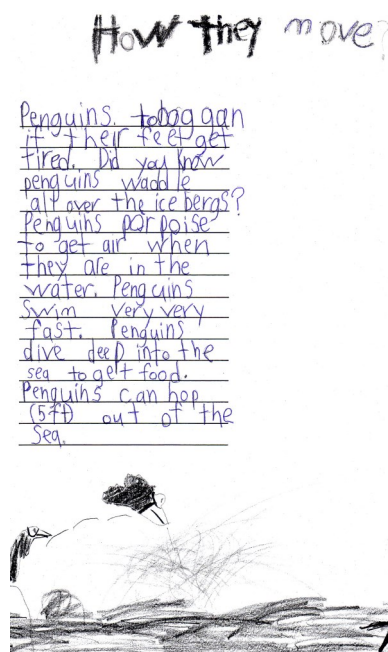 How they move?
Penguins. tobaggan
if their feet get
tired. Did you know
penguins waddle
all over the ice bergs?
Penguins porpoise
to get air when
they are in the
water. Penguins
swim very very
fast. Penguins
dive deep into the
sea to get food.
Penguins can hop
(5ft) out of the
Sea.